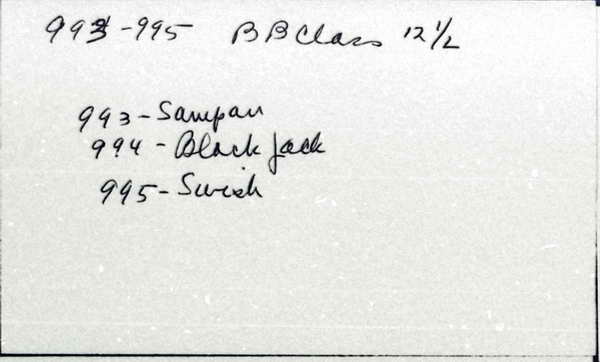 993-995 BB Class 12 1/2
993-Sampan
994-Black Jack
995-Swish